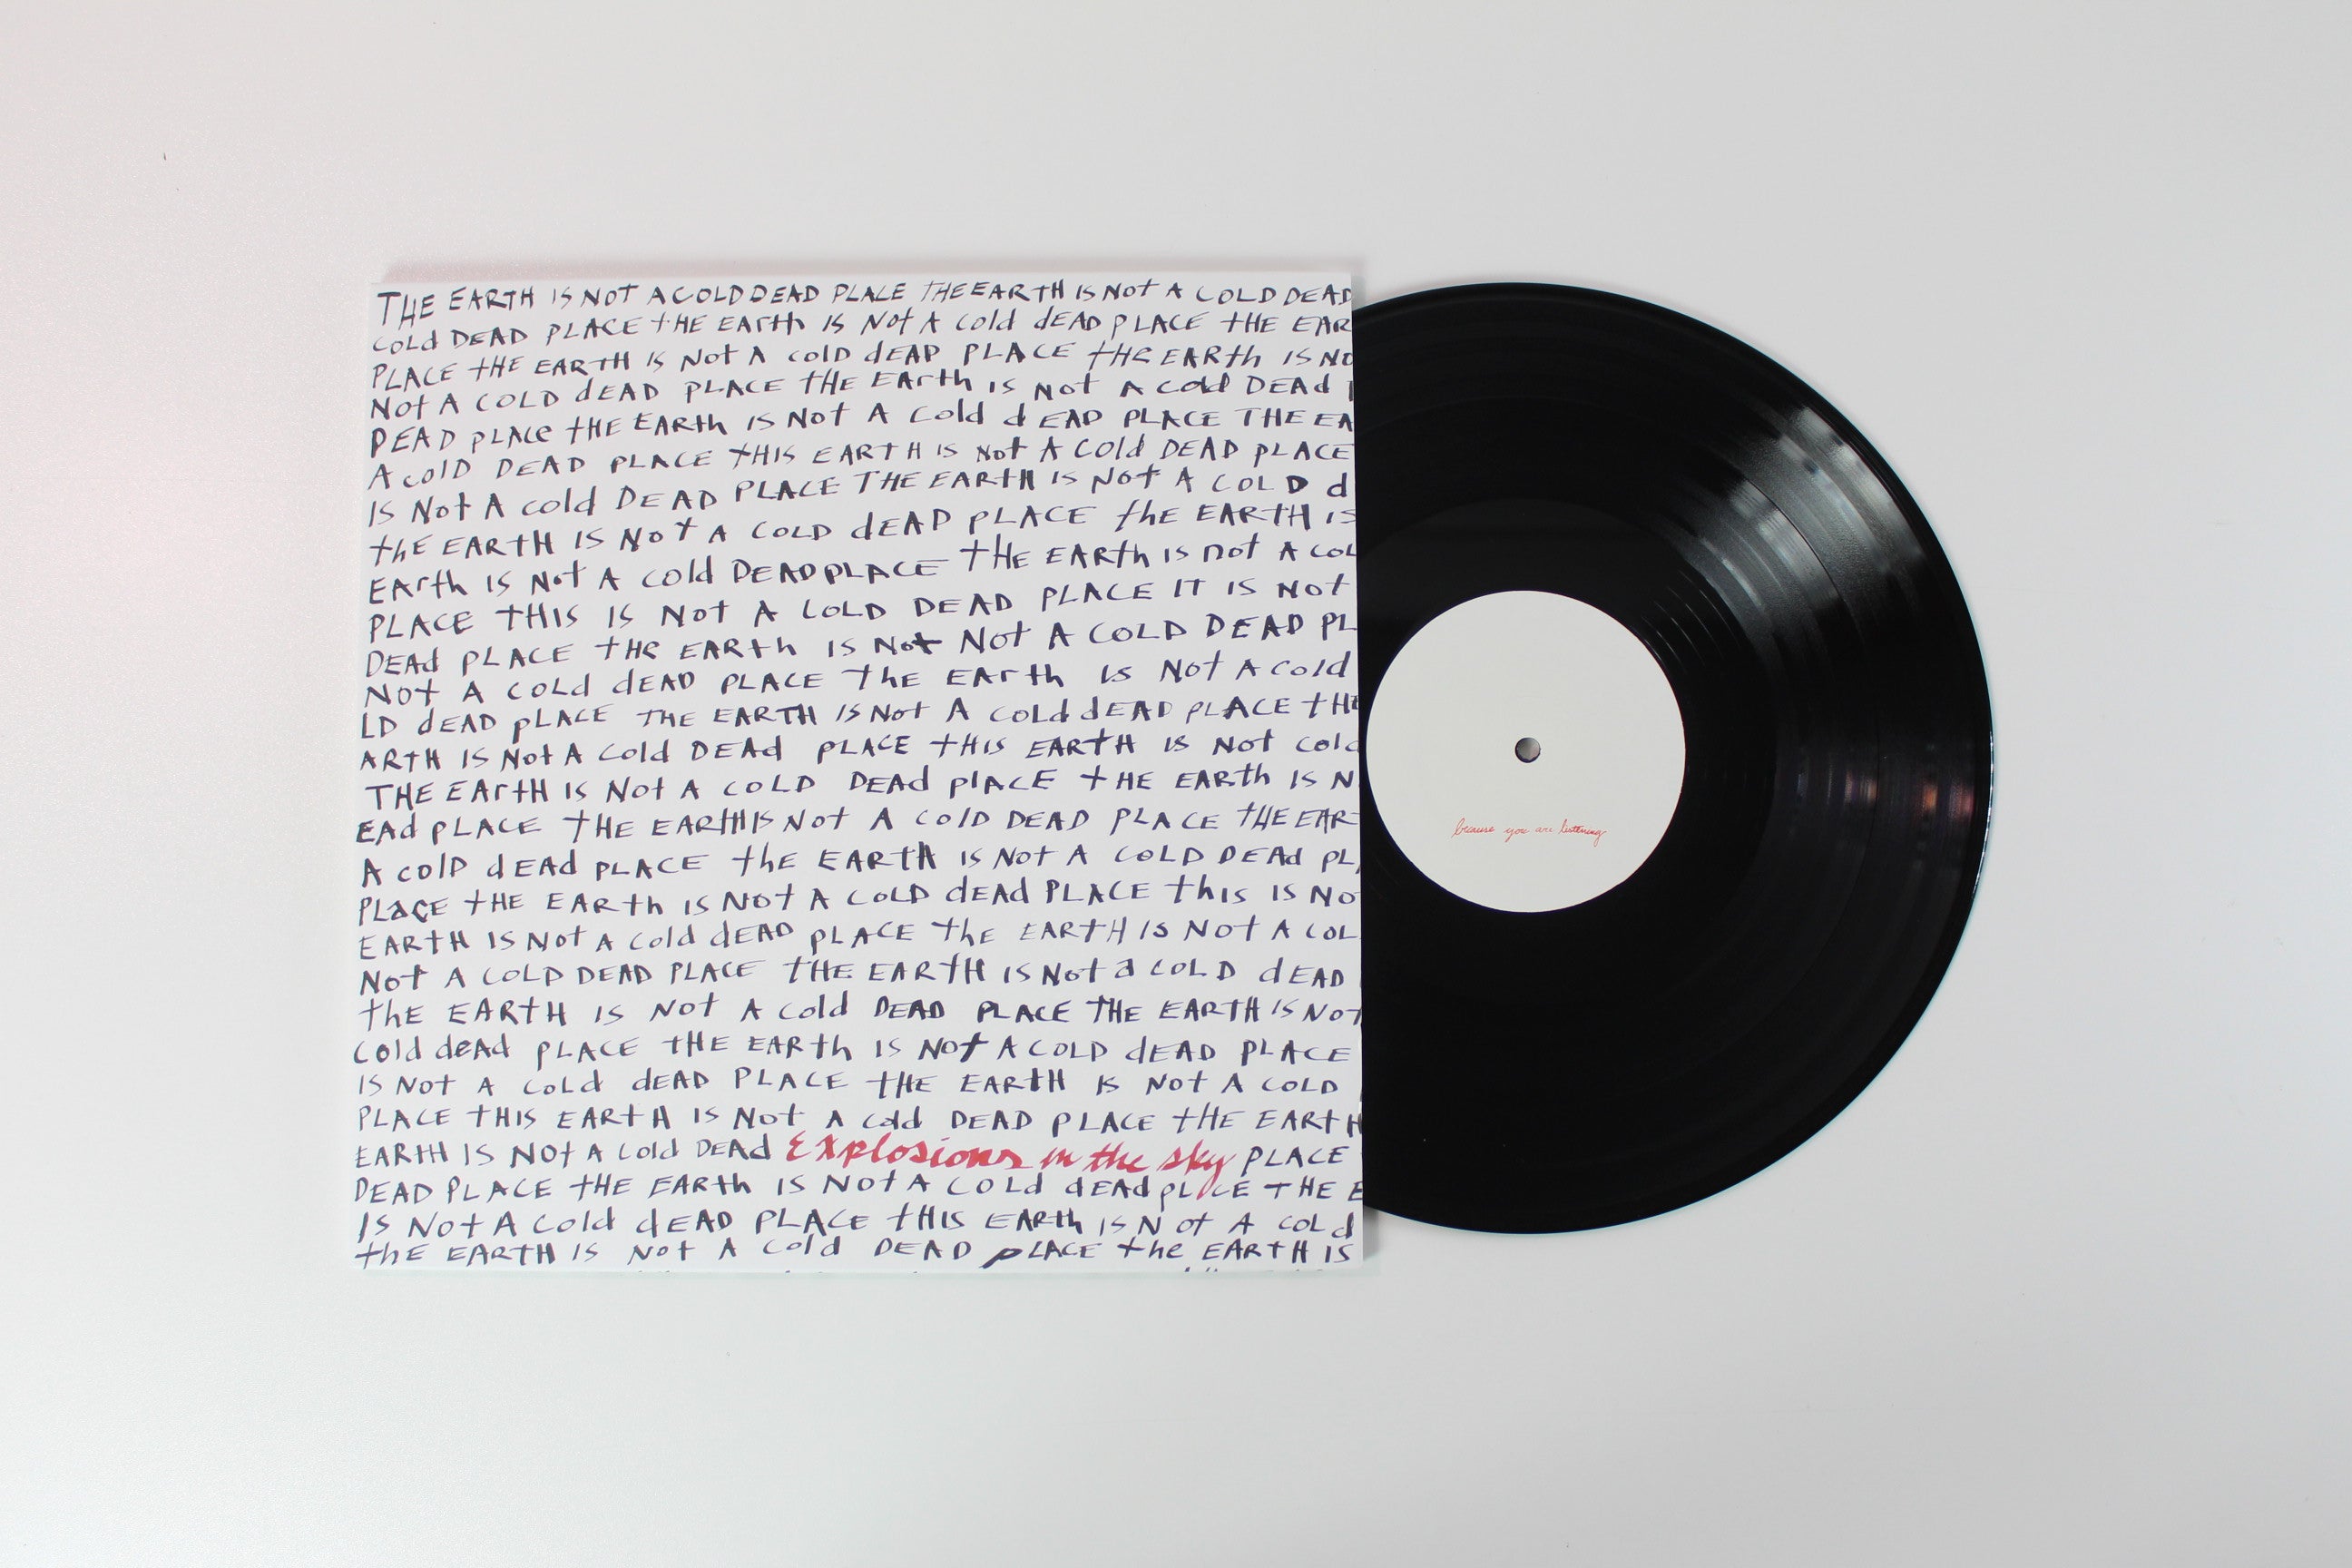 THE EARTH IS NOT A COLD DEAD PLACE THE EARTH IS NOT A COLD DEAD
COLd DEAD PLACE tHE EArth IS Not A Cold dEAD PLACE tHE EAR
PLACE tHE EARtH IS Not A Cold dEAD PLACE tHe EARth IS NO
Not A COLD dEAD PLACE tHE EArth is Not A Cold DEAd
DEAD pLACe tHE EARth IS Not A Cold dEAD PLACE THE EA
A ColD DEAD PLACE tHIS EARTH IS Not A Cold DEAD pLACE
IS Not A Cold DEAD PLACE THE EARtH IS Not A COLD d
thE EARtH IS NoT A COLD dEAD PLACE thE EARtH IS
EArth IS Not A Cold DEAD PLACE tHE EARth is not A COL
PLACE tHIS IS Not A COLD DEAD PLACE IT IS NOT
DEAd PLACE tHe EARth IS Not Not A COLD DEAD PL
NOt A COLd dEAD PLACE thE EArth IS Not A Cold
LD dEAD pLACE THE EARTH IS Not A COLd dEAD PLACE tHE
ARTH IS Not A Cold DEAd PLACE tHIS EARtH IS Not Cold
THE EArtH IS Not A COLD DEAd plACE tHE EARth IS N
EAd pLACE tHE EARtH IS Not A ColD DEAD PLACE tHE EAR
A ColD dEAd PLACE thE EARtH IS Not A COLD DEAd PL
PLaCE tHE EARth IS Not A COLD dEAd PLACE this IS NO
EARtH IS Not A Cold dEAD pLACE thE EARtH IS Not A COL
Not A COLD DEAD PLACE tHE EARtH IS Not a COLD dEAD
thE EARtH IS Not A Cold DEAD PLACE THE EARTH IS NOT
Cold deAd PLACE tHE EARth IS Not A COLD dEAD PLACE
IS Not A ColD dEAD PLACE tHE EARtH IS Not A COLD
PLACE tHIS EARtH IS Not A Cold DEAD PLACE tHE EARtH
EARtH IS NOt A Cold DEAd Explosions in the sky PLACE
DEAD PLACE tHE EARth IS Not A COLd dEAd pLACE THE E
IS Not A Cold dEAD PLACE tHIS EARth IS Not A COLd
thE EARTH IS Not A Cold DEAD pLACE the EARtH IS
because you are listening